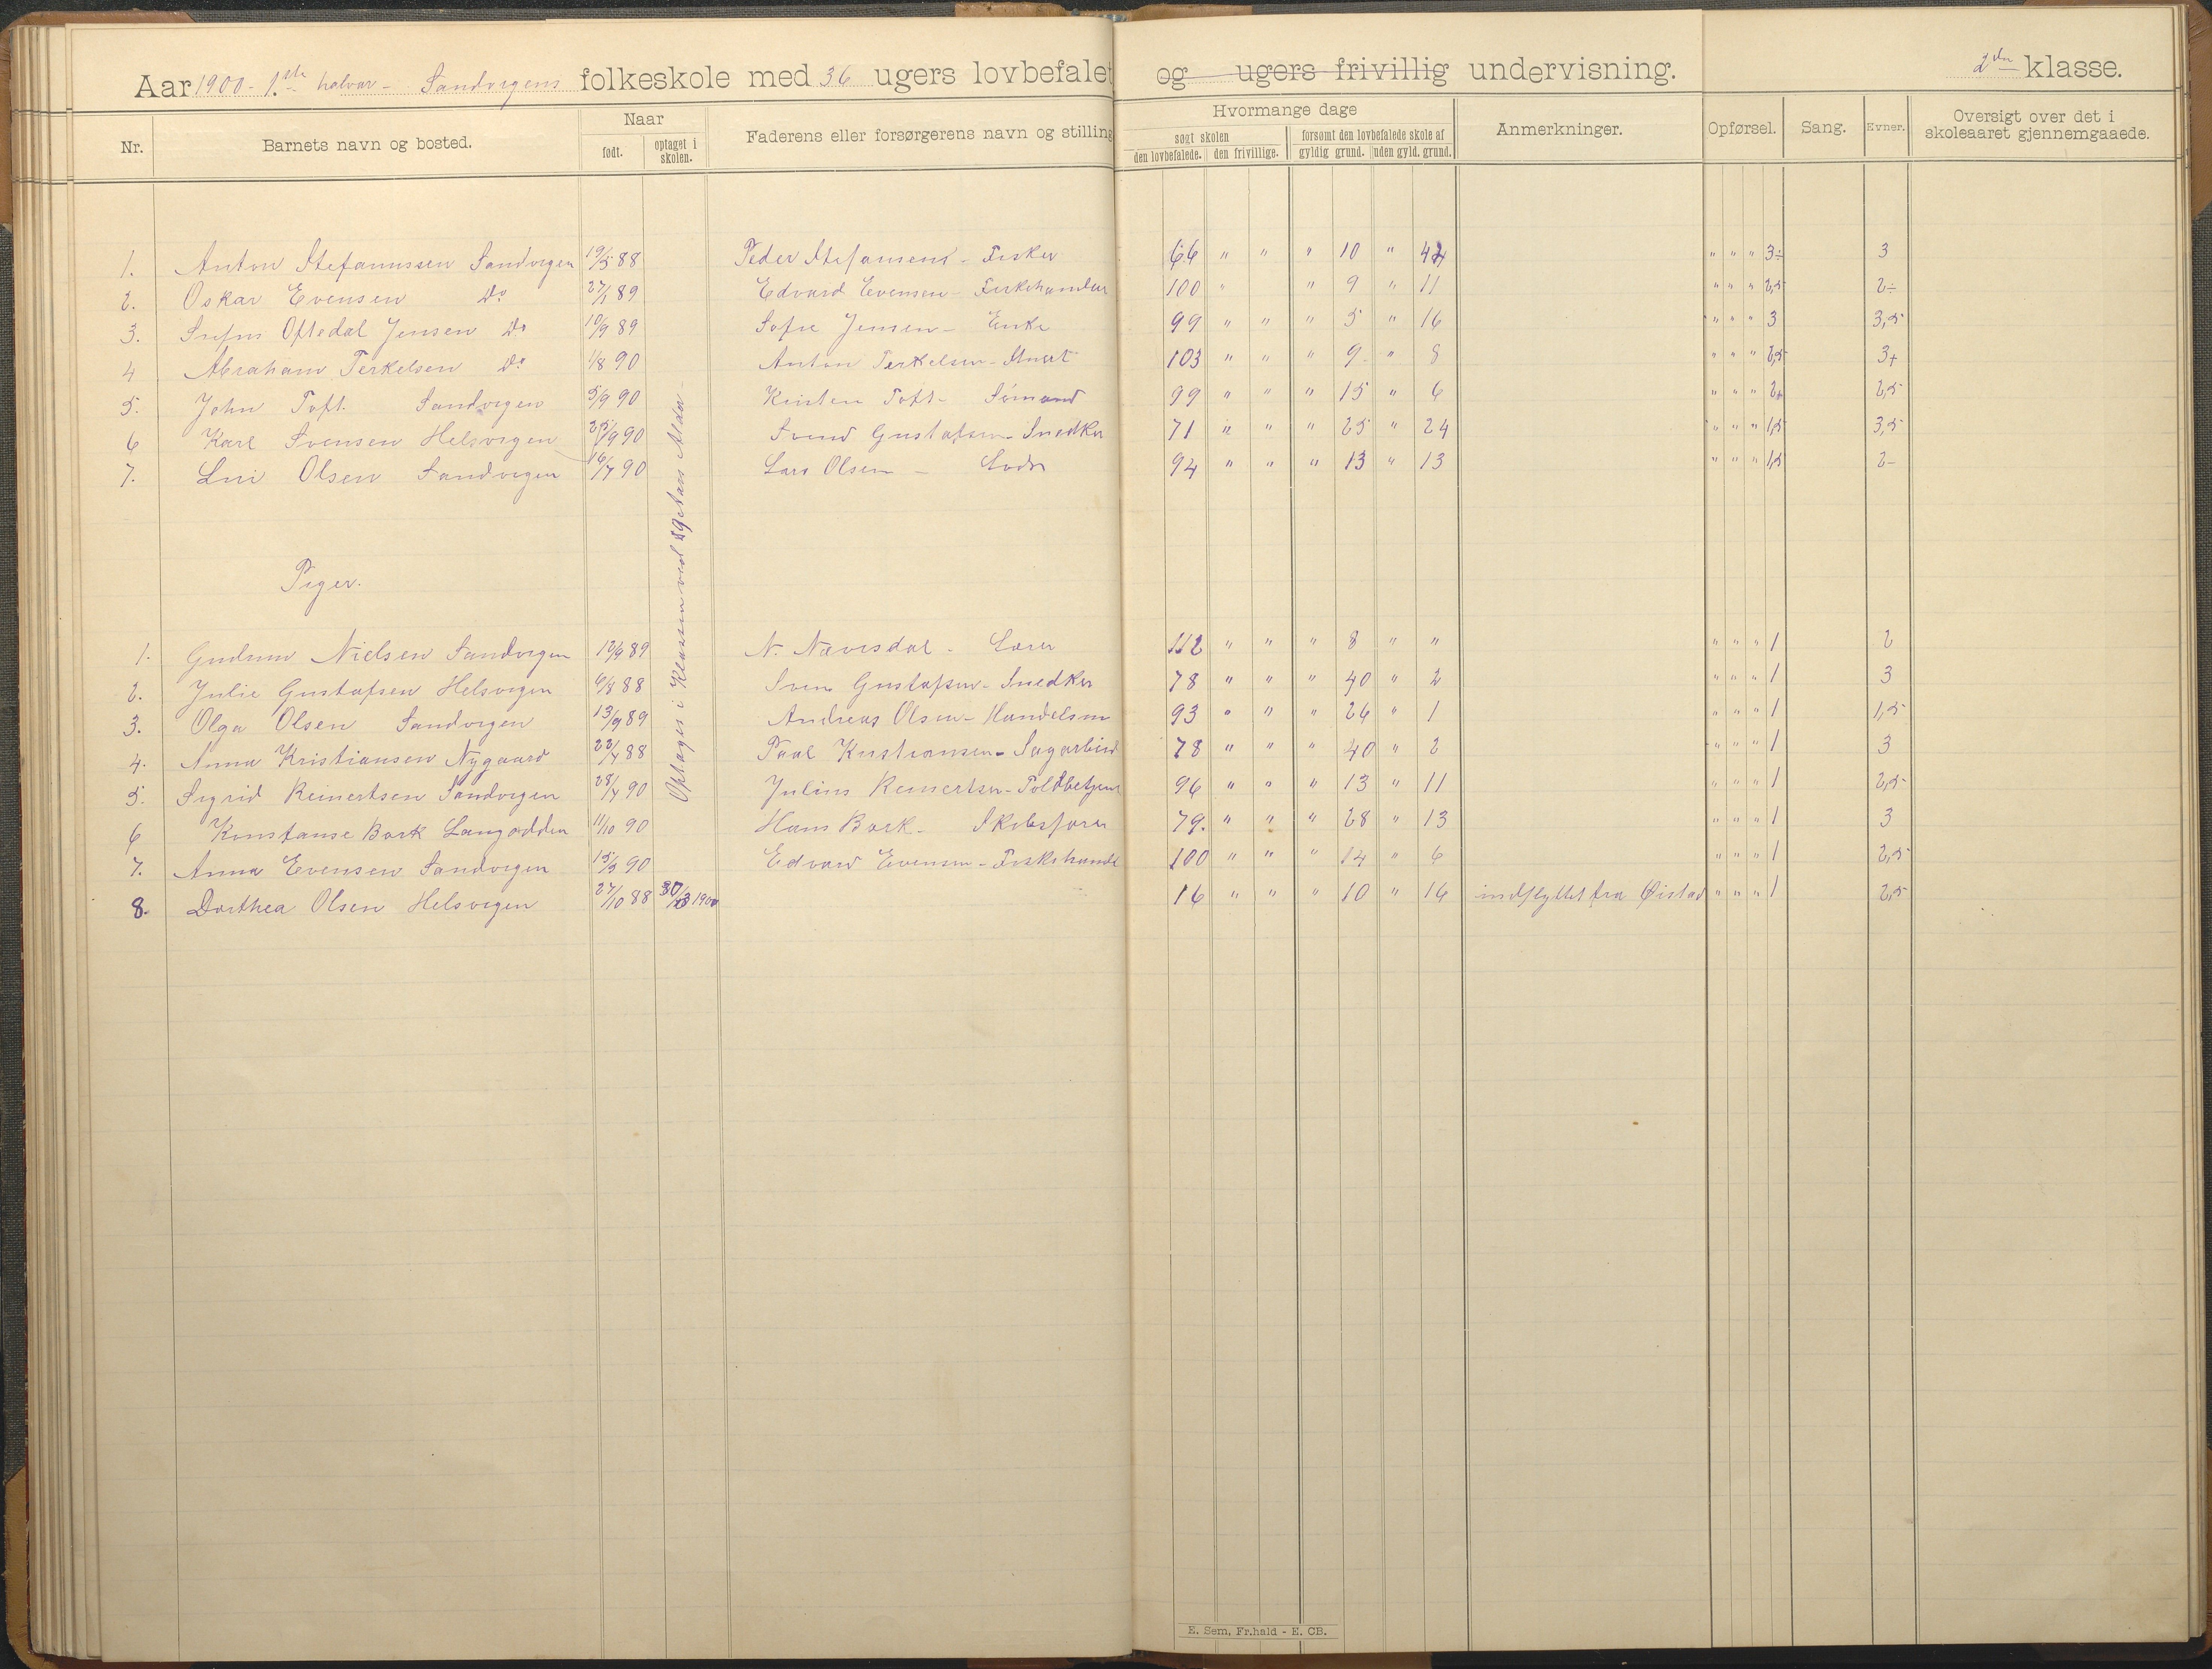 Aar 1900 - 1.ste halvar - Sandvigens folkeskole med 36 ugers lovbefalet og ugers frivillig undervisning. 2den klasse.
Nr. Barnets navn og bosted. Naar født. optaget i skolen. Faderens eller forsørgerens navn og stilling Hvormange dage søgt skolen den lovbefalede. den frivillige. forsømt den lovbefalede skole af gyldig grund. uden gyld. grund. Anmerkninger. Opførsel. Sang. Evner. Oversigt over det i skoleaaret gjennemgaaede.
1. Anton Stefanussen Sandvigen 19/5 88 Peder Stefansens - Fisker 66 " " " 10 " " " " 3÷ 3
2. Oskar Evensen Do 27/1 89 Edvard Evensen - Fiskehandler 100 " " 9 " 11 " " " 2,5 2÷
3. Oftedal Jensen Do 10/9 89 Sofie Jensen - Enke 99 " " " 5 " 16 " " " 3 3,5
4 Abraham Terkelsen Do 1/8 90 Anton Terkelsen - 103 " " " 9 " 8 " " " 2,5 3+
5. John Toft Sandvigen 5/9 90 Kristen Toft - Sömand 99 " " " 15 " 6 " " " 2+ 2,5
6 Karl Svensen Helsvigen 25/9 90 Svend Gustafsen - Snedker 71 " " " 25 " 24 " " " 1,5 3,5
7. Olsen Sandvigen 16/7 90 Lars Olsen - Lods 94 " " " 13 " 13 " " " 1,5 2-
Optages i Klassen ved 9 Aars Alder
Piger.
1. Gudrun Nielsen Sandvigen 12/9 89 N. Nævisdal - Lærer 112 " " " 8 " " " " " 1 2
2. Julie Gustafsen Helsvigen 6/8 88 Sven Gustafsen - Snedker 78 " " " 40 " 2 " " " 1 3
3. Olga Olsen Sandvigen 13/9 89 Andreas Olsen - Handelsm 93 " " " 26 " 1 " " " 1 1,5
4. Anna Kristiansen Nygaard 22/4 88 Paal Kristiansen - Sagarbeid 78 " " " 40 " 2 " " " 1 3
5. Sigrid Reinertsen Sandvigen 28/4 90 Julius Reinertsen - Toldbetjent 96 " " " 13 " 11 " " " 1 2,5
6 Konstanse Bork Langodden 11/10 90 Hans Bork - Skibsfører 79. " " " 28 " 13 " " " 1 3
7. Anna Evensen Sandvigen 15/3 90 Edvard Evensen - Fiskehandl 100 " " " 14 " 6 " " " 1 2,5
8. Dorthea Olsen Helsvigen 27/10 88 30/3 1900 16 " " " 10 " 16 indflyttet fra Øistad " " " 1 2,5
E. Sem, Fr.hald - E. CB.